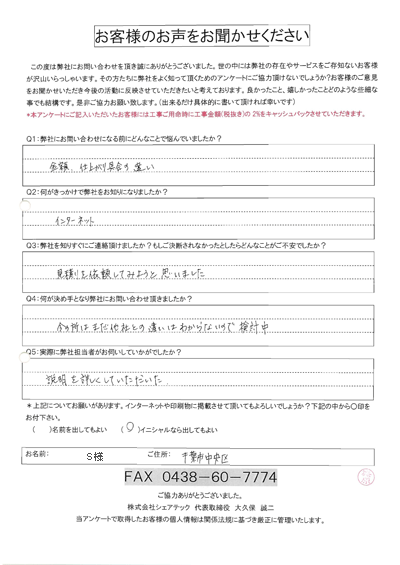 お客様のお声をお聞かせください
この度は弊社にお問い合わせを頂き誠にありがとうございました。世の中には弊社の存在やサービスをご存知ないお客様
が沢山いらっしゃいます。その方たちに弊社をよく知って頂くためのアンケートにご協力頂けないでしょうか?お客様のご意見
をお聞かせいただき今後の活動に反映させていただきたいと考えております。良かったこと、嬉しかったことどのような些細な
事でも結構です。是非ご協力お願い致します。（出来るだけ具体的に書いて頂ければ幸いです）
*本アンケートにご記入いただいたお客様には工事ご用命時に工事金額(税抜き)の 2%をキャッシュバックさせていただきます。
Q1:弊社にお問い合わせになる前にどんなことで悩んでいましたか?
金額、仕上がり具合の違い
Q2:何がきっかけで弊社をお知りになりましたか?
インターネット
Q3:弊社を知りすぐにご連絡頂けましたか?もしご決断されなかったとしたらどんなことがご不安でしたか?
見積りを依頼してみようと思いました
Q4:何が決め手となり弊社にお問い合わせ頂きましたか?
今の所はまだ他社との違いはわからないので検討中
Q5:実際に弊社担当者がお伺いしていかがでしたか?
説明を詳しくしていただいた.
＊上記についてお願いがあります。インターネットや印刷物に掲載させて頂いてもよろしいでしょうか?下記の中から〇印を
お付下さい。
（　）名前を出してもよい　（〇）イニシャルなら出してもよい
お名前:　S様　ご住所:　千葉市中央区
FAX 0438-60-7774
ご協力ありがとうございました。
株式会社シェアテック 代表取締役 大久保 誠二
当アンケートで取得したお客様の個人情報は関係法規に基づき厳正に管理いたします。